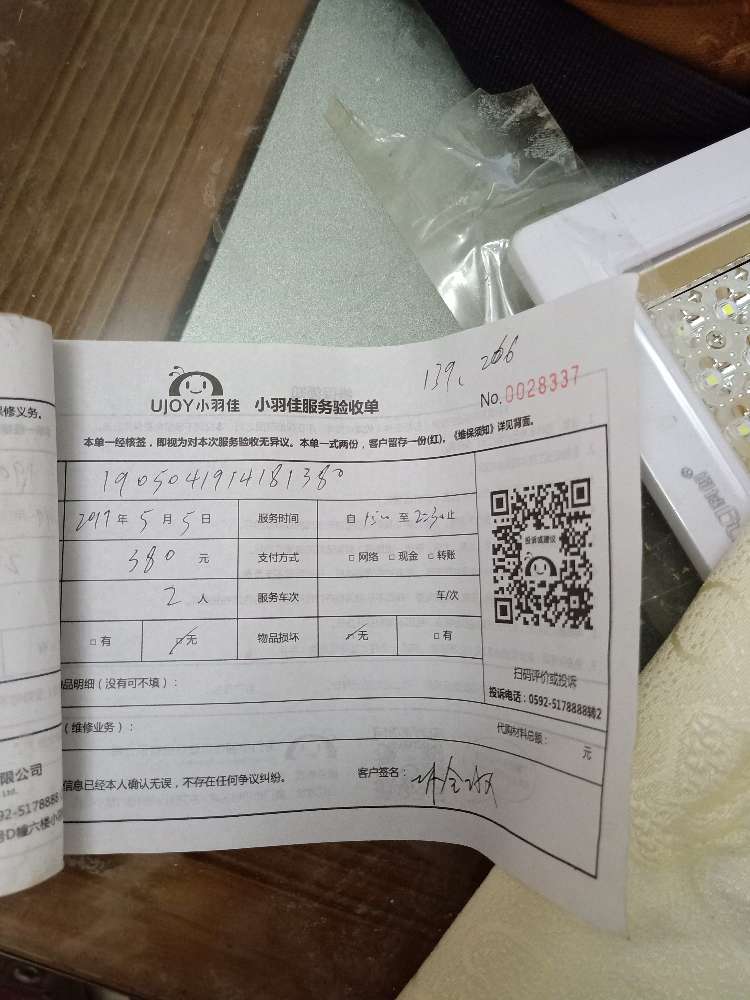 139. 266
UJOY小羽佳 小羽佳服务验收单 No.0028337
保修义务。
本单一经核签，即视为对本次服务验收无异议。本单一式两份，客户留存一份(红)。《维保须知》详见背面。
1905041914181380
5月5日 服务时间 自 至 止
380元 支付方式 □网络 □现金 □转账
投诉或建议
2人 服务车次 车/次
□有 □无 物品损坏 □无 □有
扫码评价或投诉
品明细（没有可不填）：
投诉电话：0592-5178888转2
（维修业务）：
代购材料总额： 元
信息已经本人确认无误，不存在任何争议纠纷。 客户签名：
限公司
Ltd.
92-5178888
号D幢六楼小